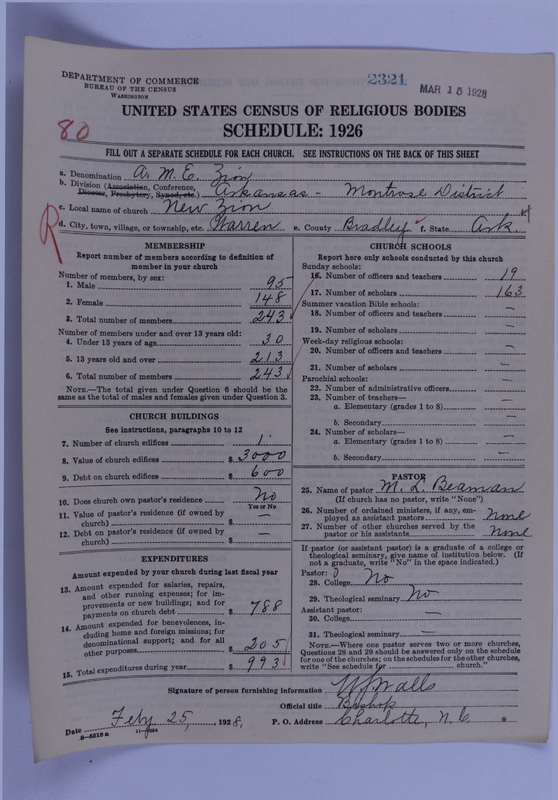 DEPARTMENT OF COMMERCE
BUREAU OF THE CENSUS
WASHINGTON
2321
MAR 15 1928
UNITED STATES CENSUS OF RELIGIOUS BODIES
SCHEDULE: 1926
80
FILL OUT A SEPARATE SCHEDULE FOR EACH CHURCH. SEE INSTRUCTIONS ON THE BACK OF THIS SHEET
a. Denomination A. M. E. Zion
b. Division (Association, Conference, Diocese, Presbytery, Synod, etc.) Arkansas - Montrose District
c. Local name of church New Zion
R
d. City, town, village, or township, etc. Warren e. County Bradley f. State Ark.
MEMBERSHIP
Report number of members according to definition of
member in your church
Number of members, by sex:
1. Male 95
2. Female 148
3. Total number of members 243
Number of members under and over 13 years old:
4. Under 13 years of age 30
5. 13 years old and over 213
6. Total number of members 243
NOTE.—The total given under Question 6 should be
same as the total of males and females given under Question 3.
CHURCH BUILDINGS
See instructions, paragraphs 10 to 12
7. Number of church edifices 1
8. Value of church edifices $ 3000
9. Debt on church edifices $ 600
10. Does church own pastor's residence No
Yes or No
11. Value of pastor's residence (if owned by
church) $ —
12. Debt on pastor's residence (if owned by
church) $ —
EXPENDITURES
Amount expended by your church during last fiscal year
13. Amount expended for salaries, repairs,
and other running expenses; for im-
provements or new buildings; and for
payments on church debt $ 788
14. Amount expended for benevolences, in-
cluding home and foreign missions; for
denominational support; and for all
other purposes $ 205
15. Total expenditures during year $ 993
CHURCH SCHOOLS
Report here only schools conducted by this church
Sunday schools:
16. Number of officers and teachers 19
17. Number of scholars 163
Summer vacation Bible schools:
18. Number of officers and teachers —
19. Number of scholars —
Week-day religious schools:
20. Number of officers and teachers —
21. Number of scholars —
Parochial schools:
22. Number of administrative officers —
23. Number of teachers—
a. Elementary (grades 1 to 8) —
b. Secondary —
24. Number of scholars—
a. Elementary (grades 1 to 8) —
b. Secondary —
PASTOR
25. Name of pastor M. L. Beaman
(If church has no pastor, write "None")
26. Number of ordained ministers, if any, em-
ployed as assistant pastors None
27. Number of other churches served by the
pastor or his assistants None
If pastor (or assistant pastor) is a graduate of a college or
theological seminary, give name of institution below. (If
not a graduate, write "No" in the space indicated.)
Pastor:
28. College No
29. Theological seminary No
Assistant pastor:
30. College —
31. Theological seminary —
NOTE.—Where one pastor serves two or more churches,
Questions 28 and 29 should be answered only on the schedule
for one of the churches; on the schedules for the other churches,
write "See schedule for church."
Signature of person furnishing information W J Walls
Official title Bishop
Date Feby. 25, 1928. P. O. Address Charlotte, N. C.